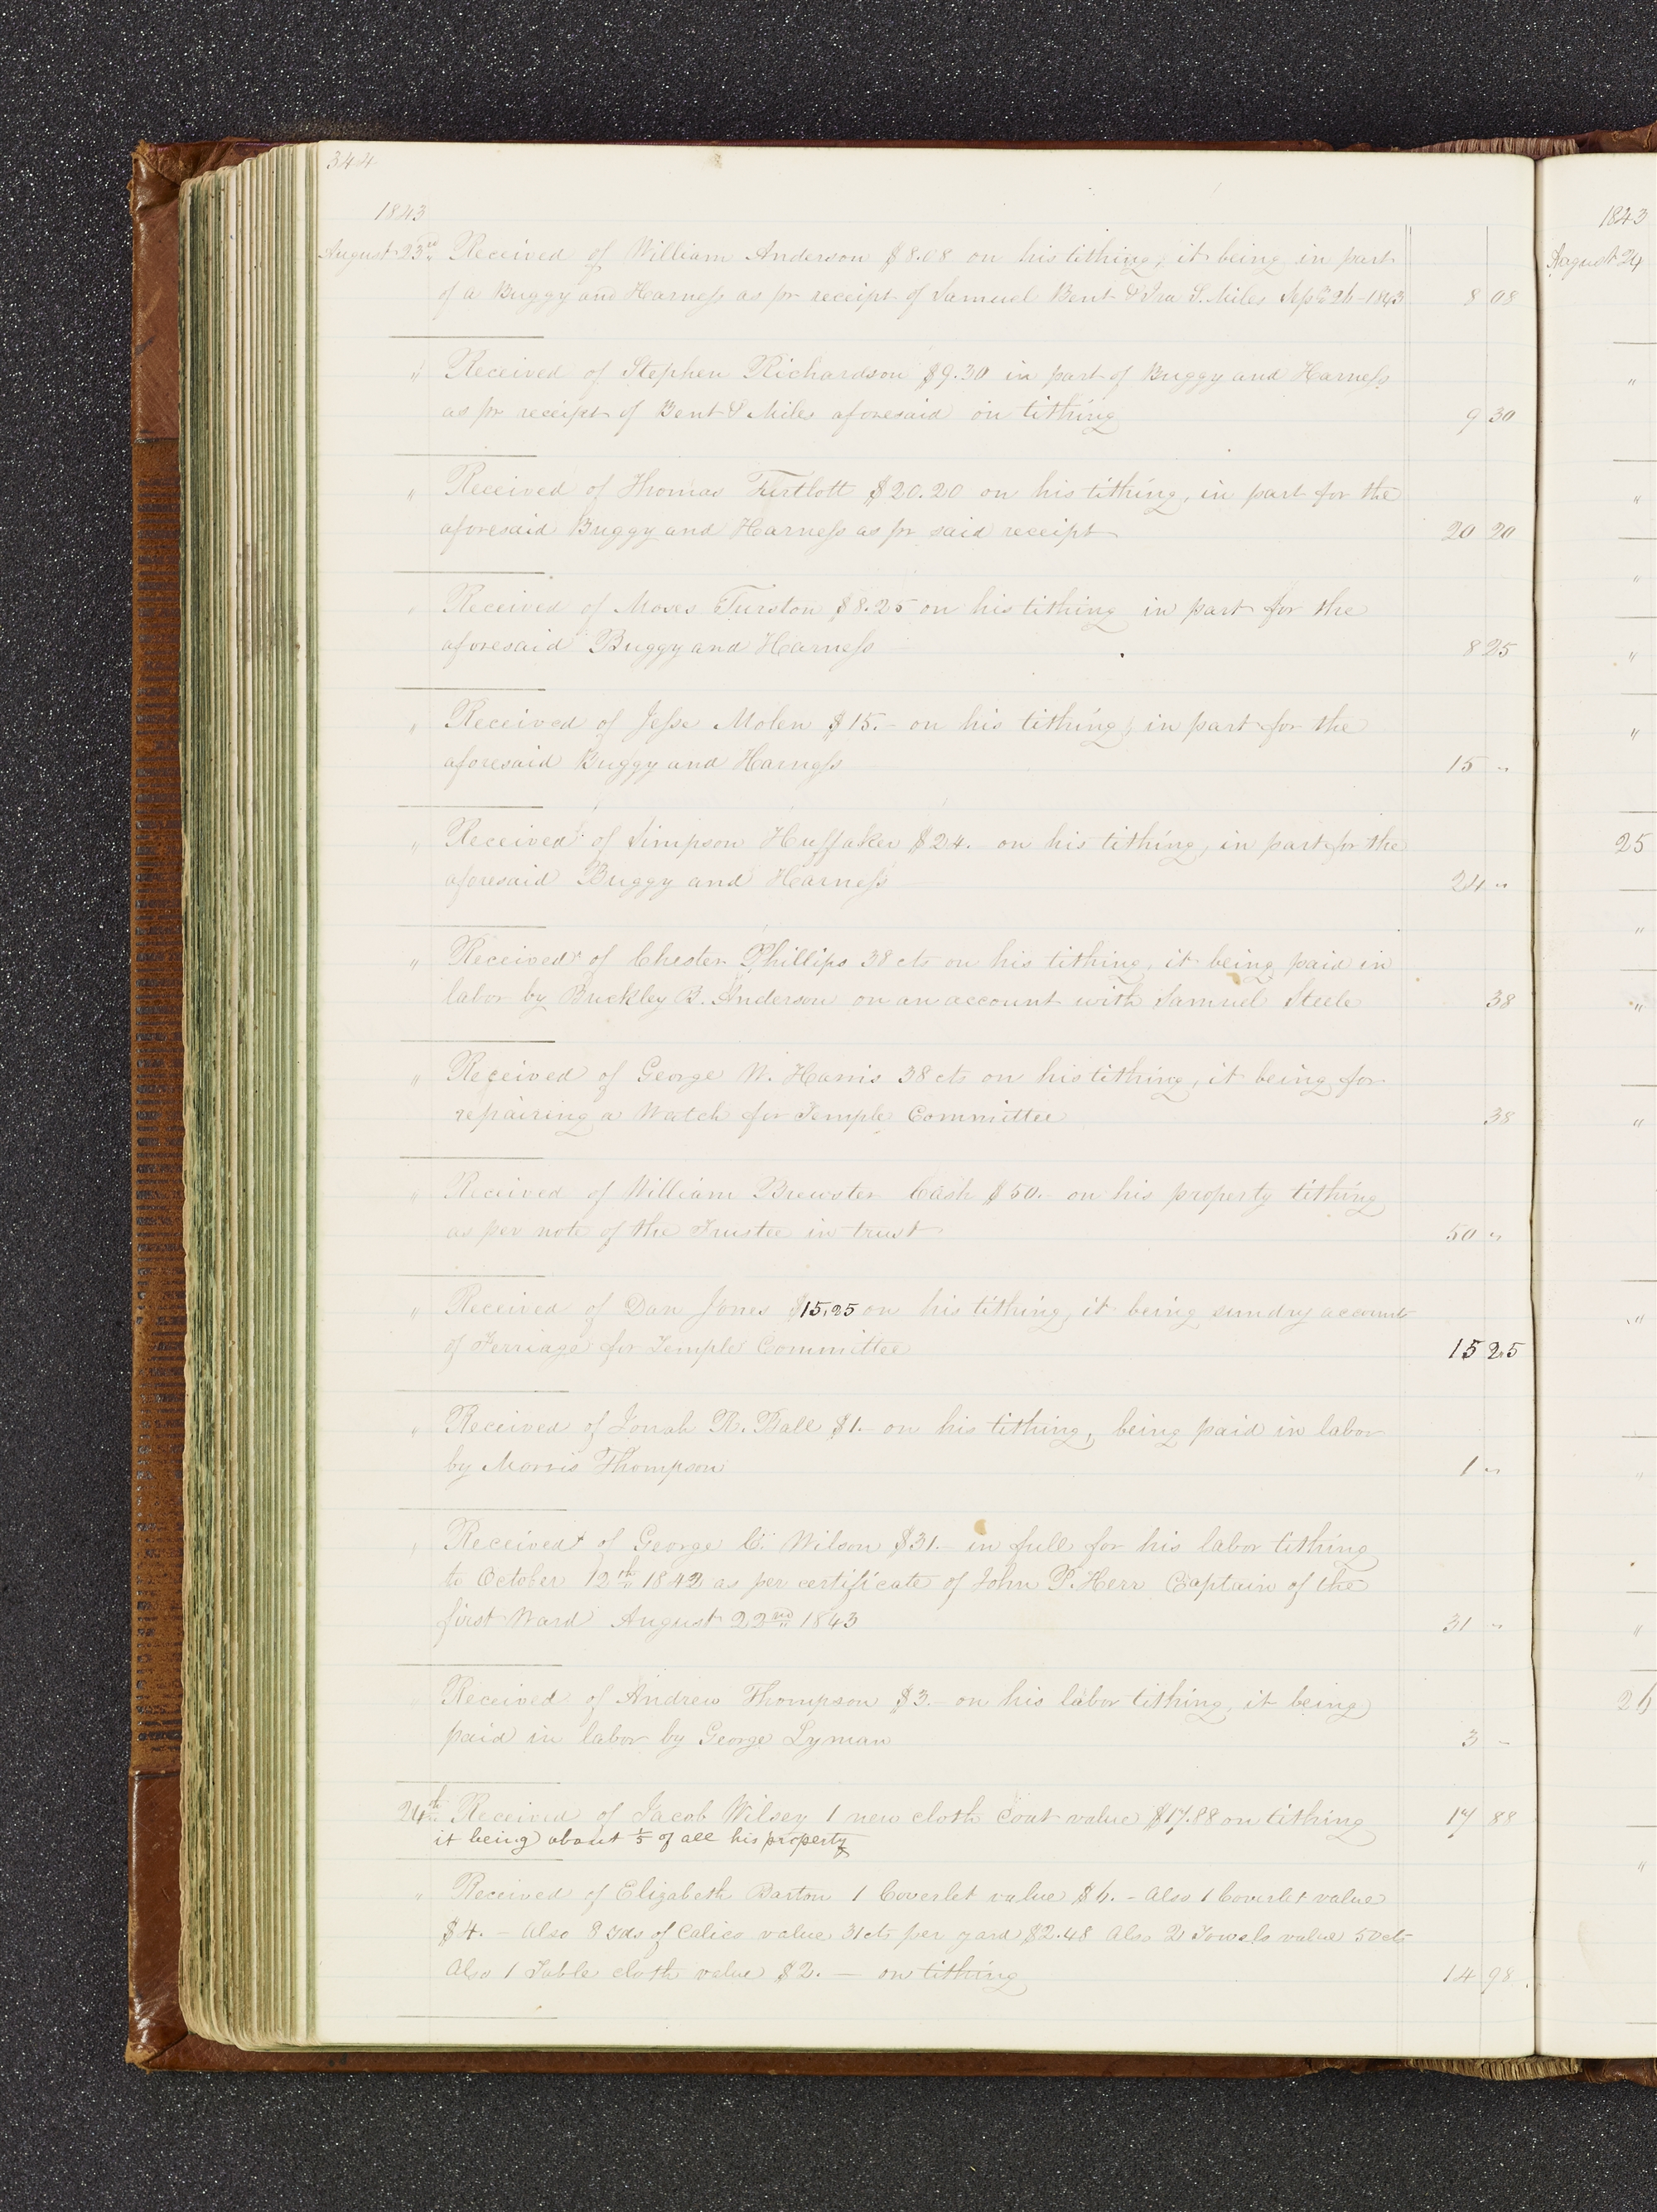 344
1843
August 23rd Received of William Anderson $8.08 on his tithing, it being in part
of a Buggy and Harness as pr receipt of Samuel Bent & Ira S. Miles Sept 26-1843 8 08
" Received of Stephen Richardson $9.30 in part of Buggy and Harness
as pr receipt of Bent & Miles aforesaid on tithing 9 30
" Received of Thomas $20.20 on his tithing, in part for the
aforesaid Buggy and Harness as pr said receipt 20 20
" Received of Moses Turston $8.25 on his tithing in part for the
aforesaid Buggy and Harness 8 25
" Received of Jesse Molen $15.- on his tithing, in part for the
aforesaid Buggy and Harness 15 "
" Received of Simpson Huffaker $24. on his tithing, in part for the
aforesaid Buggy and Harness 24 "
" Received of Chester Phillips 38 cts on his tithing, it being paid in
labor by Buckley B. Anderson on an account with Samuel Steele 38
" Received of George W. Harris 38 cts on his tithing, it being for
repairing a Watch for Temple Committee 38
" Received of William Brewster Cash $50.- on his property tithing
as per note of the Trustee in trust 50 "
" Received of Dan Jones $15.25 on his tithing, it being sundry accounts
of Ferriage for Temple Committee 15 25
" Received of Jonah R. Ball $1.- on his tithing, being paid in labor
by Morris Thompson 1 "
" Received of George C. Wilson $31.- in full for his labor tithing
to October 12th 1842 as per certificate of John P. Herr Captain of the
first Ward August 22nd 1843 31 "
Received of Andrew Thompson $3.- on his labor tithing, it being
paid in labor by George Lyman 3 -
24th Received of Jacob Wilsey 1 new cloth Coat value $17.88 on tithing 17 88
it being about 1/5 of all his property
" Received of Elizabeth Barton 1 Coverlet value $6.- Also 1 Coverlet value
$4.- Also 8 yds of Calico value 31 cts per yard $2.48 Also 2 Towels value 50 cts
Also 1 Table cloth value $2.- on tithing 14 98
1843
August 24
"
"
"
"
"
25
"
"
"
"
"
"
26
"